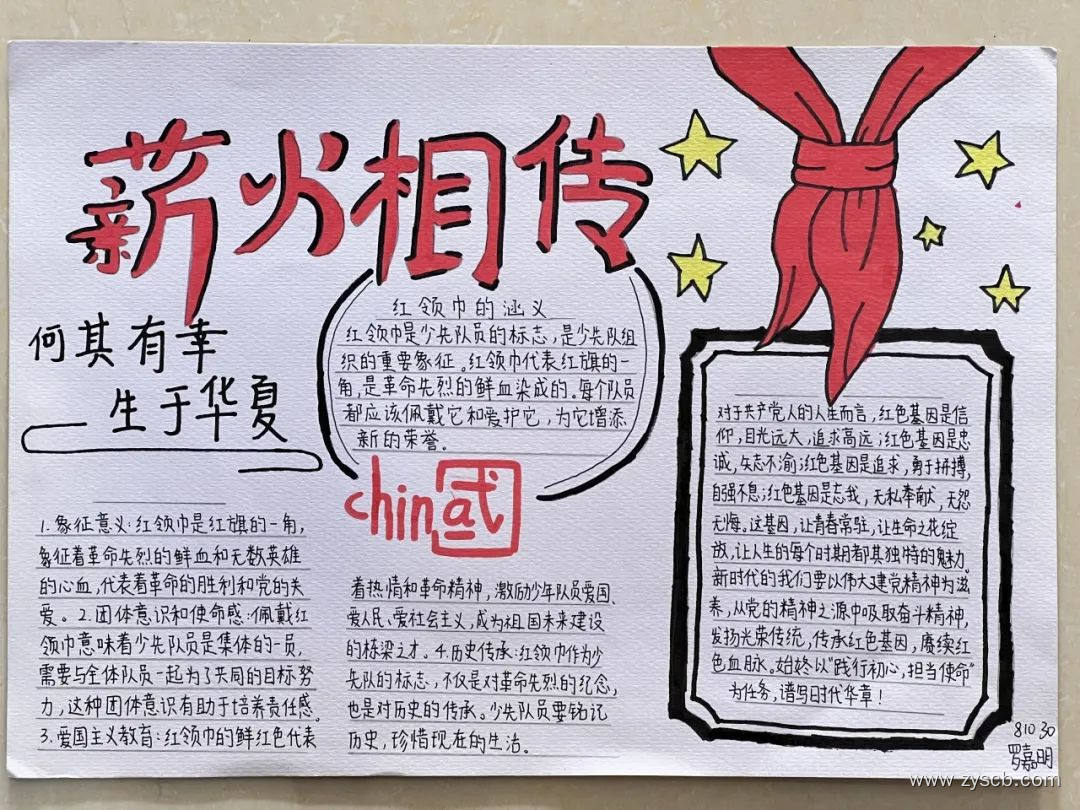 薪火相传
何其有幸
生于华夏
红领巾的涵义
红领巾是少先队员的标志,是少先队组
织的重要象征。红领巾代表红旗的一
角,是革命先烈的鲜血染成的。每个队员
都应该佩戴它和爱护它,为它增添
新的荣誉。
china
1.象征意义:红领巾是红旗的一角,
象征着革命先烈的鲜血和无数英雄
的心血,代表着革命的胜利和党的关
爱。2.团体意识和使命感:佩戴红
领巾意味着少先队员是集体的一员,
需要与全体队员一起为了共同的目标努
力,这种团体意识有助于培养责任感。
3.爱国主义教育:红领巾的鲜红色代表
着热情和革命精神,激励少年队员爱国、
爱人民、爱社会主义,成为祖国未来建设
的栋梁之才。4.历史传承:红领巾作为少
先队的标志,不仅是对革命先烈的纪念,
也是对历史的传承。少先队员要铭记
历史,珍惜现在的生活。
对于共产党人的人生而言,红色基因是信
仰,目光远大,追求高远;红色基因是忠
诚,矢志不渝;红色基因是追求,勇于拼搏,
自强不息;红色基因是忘我,无私奉献,无怨
无悔。这基因,让青春常驻,让生命之花绽
放,让人生的每个时期都其独特的魅力。
新时代的我们要以伟大建党精神为滋
养,从党的精神之源中吸取奋斗精神,
发扬光荣传统,传承红色基因,赓续红
色血脉。始终以“践行初心,担当使命”
为任务,谱写时代华章!
810 30
罗嘉明
www.zyscb.com